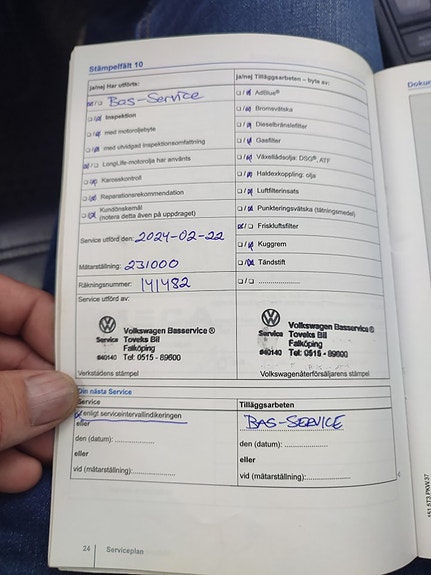 Stämpelfält 10
ja/nej Har utförts:
Bas-Service
Inspektion
med motoroljebyte
med utvidgad inspektionsomfattning
LongLife-motorolja har använts
Karosskontroll
Reparationsrekommendation
Kundönskemål
(notera detta även på uppdraget)
Service utförd den: 2024-02-22
Mätarställning: 231000
Räkningsnummer: 141482
Service utförd av:
Volkswagen Basservice ®
Service Toveks Bil
Falköping
#40140 Tel: 0515 - 89600
Verkstadens stämpel
ja/nej Tilläggsarbeten – byte av:
AdBlue®
Bromsvätska
Dieselbränslefilter
Gasfilter
Växellådsolja: DSG®, ATF
Haldexkoppling: olja
Luftfilterinsats
Punkteringsvätska (tätningsmedel)
Friskluftsfilter
Kuggrem
Tändstift
Volkswagen Basservice ®
Service Toveks Bil
Falköping
#40140 Tel: 0515 - 89600
Volkswagenåterförsäljarens stämpel
Din nästa Service
Service
enligt serviceintervallindikeringen
eller
den (datum): ......................
eller
vid (mätarställning): ...............
Tilläggsarbeten
BAS-SERVICE
den (datum): ......................
eller
vid (mätarställning): ...............
24 | Serviceplan
Dokun